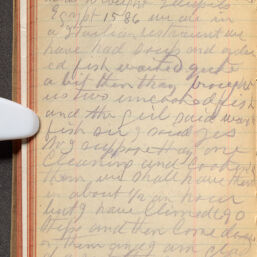 Egypt 1586 we are in
a Italian restaurant we
have had soup and order
ed fish waited quite
a bit then they brought
us two uncooked fish
and the girl said want
fish sir I said yes
I suppose they are
cleaning and cooking
them we shall have them
in about 1/2 an hour
but I have climbed 90
steps and then come down
them and I am glad